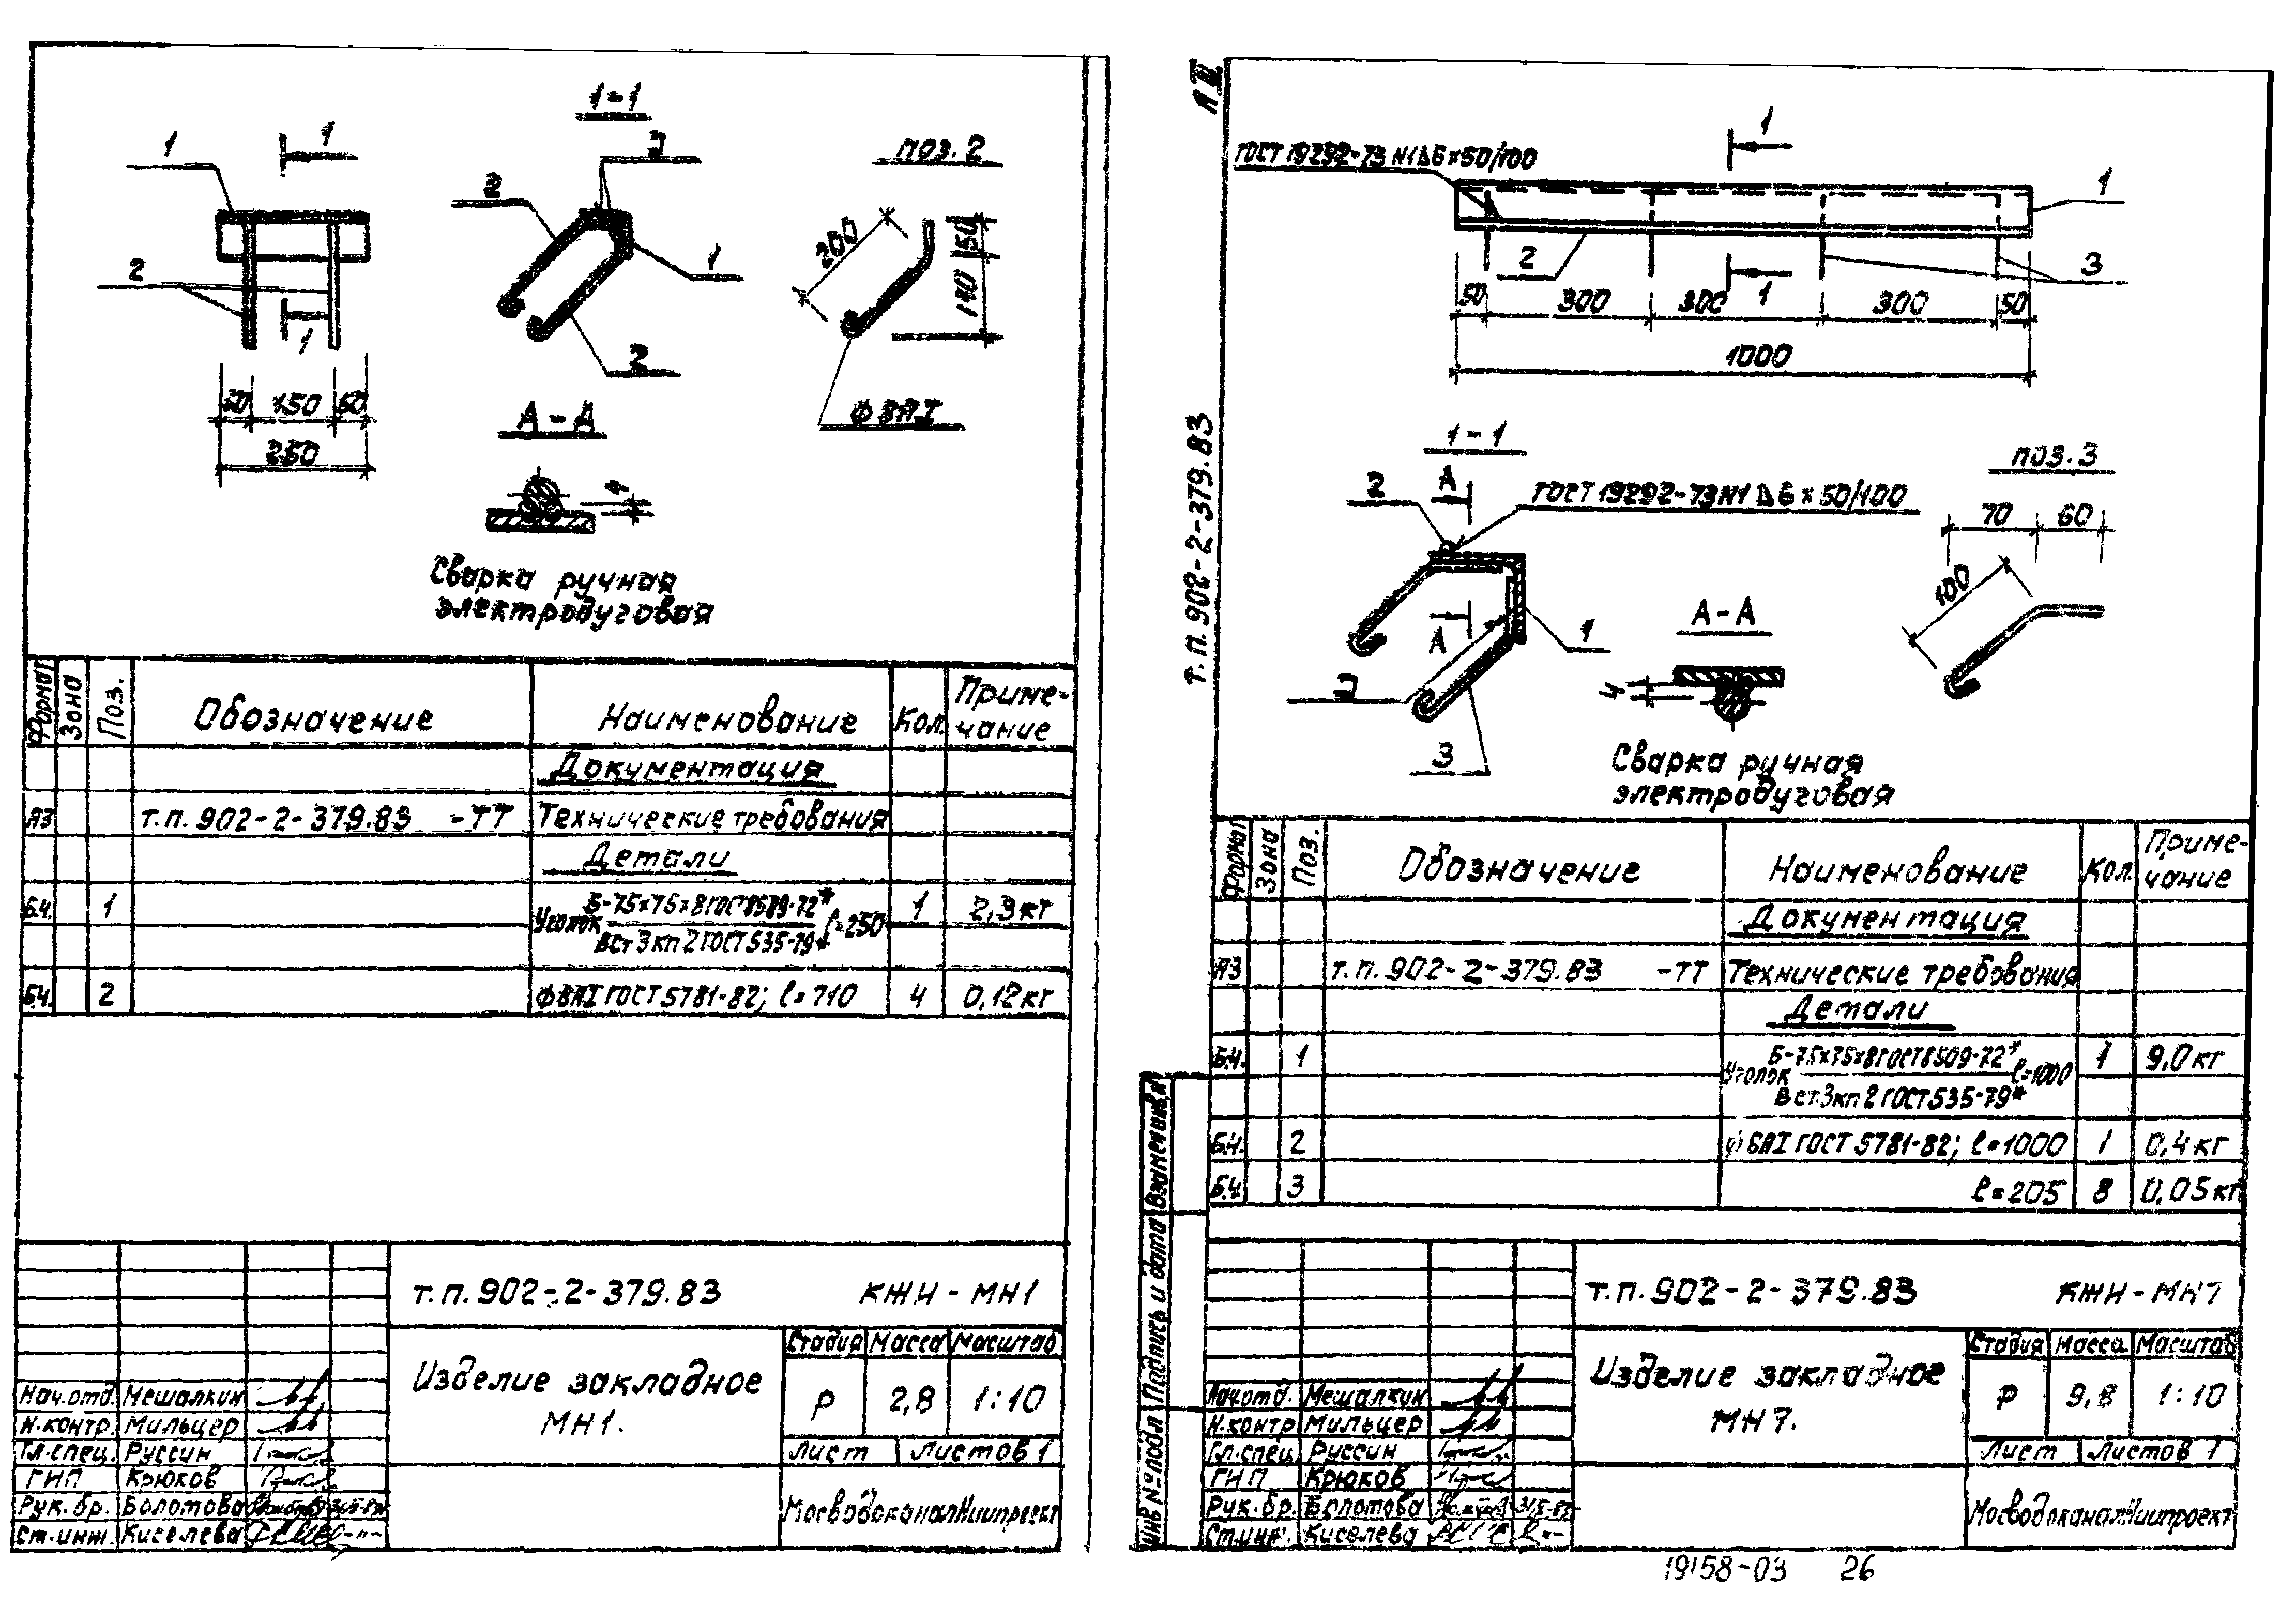 1-1
1
1
поз. 2
2
1
2
1
2
200
50
140
50
150
50
250
А-А
ф8АI
4
Сварка ручная
электродуговая
Формат
Зона
Поз.
Обозначение
Наименование
Кол.
Приме-
чание
Документация
А3 т.п. 902-2-379.83 -ТТ Технические требования
Детали
Б.ч. 1 Уголок Б-75х75х8 ГОСТ 8509-72* l=250 1 2,3 кг
ВСт3кп2 ГОСТ 535-79*
Б.ч. 2 ф8АI ГОСТ 5781-82; l=710 4 0,12 кг
т.п. 902-2-379.83 КЖИ-МН1
Изделие закладное
МН1.
Стадия Масса Масштаб
Р 2,8 1:10
Лист Листов 1
МосводоканалНИИпроект
Нач.отд. Мешалкин
Н.контр. Мильцер
Гл.спец. Руссин
ГИП Крюков
Рук.бр. Болотова
Ст.инж. Киселева
т.п. 902-2-379.83
1
ГОСТ 19292-73 Н1 Δ6х50/100
1
2
3
1
50
300
300
300
50
1000
1-1
поз. 3
2
А
ГОСТ 19292-73 Н1 Δ6х50/100
70
60
100
А
1
А-А
4
3
Сварка ручная
электродуговая
Формат
Зона
Поз.
Обозначение
Наименование
Кол.
Приме-
чание
Документация
А3 т.п. 902-2-379.83 -ТТ Технические требования
Детали
Б.ч. 1 Уголок Б-75х75х8 ГОСТ 8509-72* l=1000 1 9,0 кг
ВСт3кп2 ГОСТ 535-79*
Б.ч. 2 ГОСТ 5781-82; l=1000 1 0,4 кг
Б.ч. 3 l=205 8 0,05 кг
Подпись и дата
Инв № подл
т.п. 902-2-379.83 КЖИ-МН7
Изделие закладное
МН7.
Стадия Масса Масштаб
Р 9,8 1:10
Лист Листов 1
МосводоканалНИИпроект
Нач.отд. Мешалкин
Н.контр. Мильцер
Гл.спец. Руссин
ГИП Крюков
Рук.бр. Болотова
Ст.инж. Киселева
19158-03 26